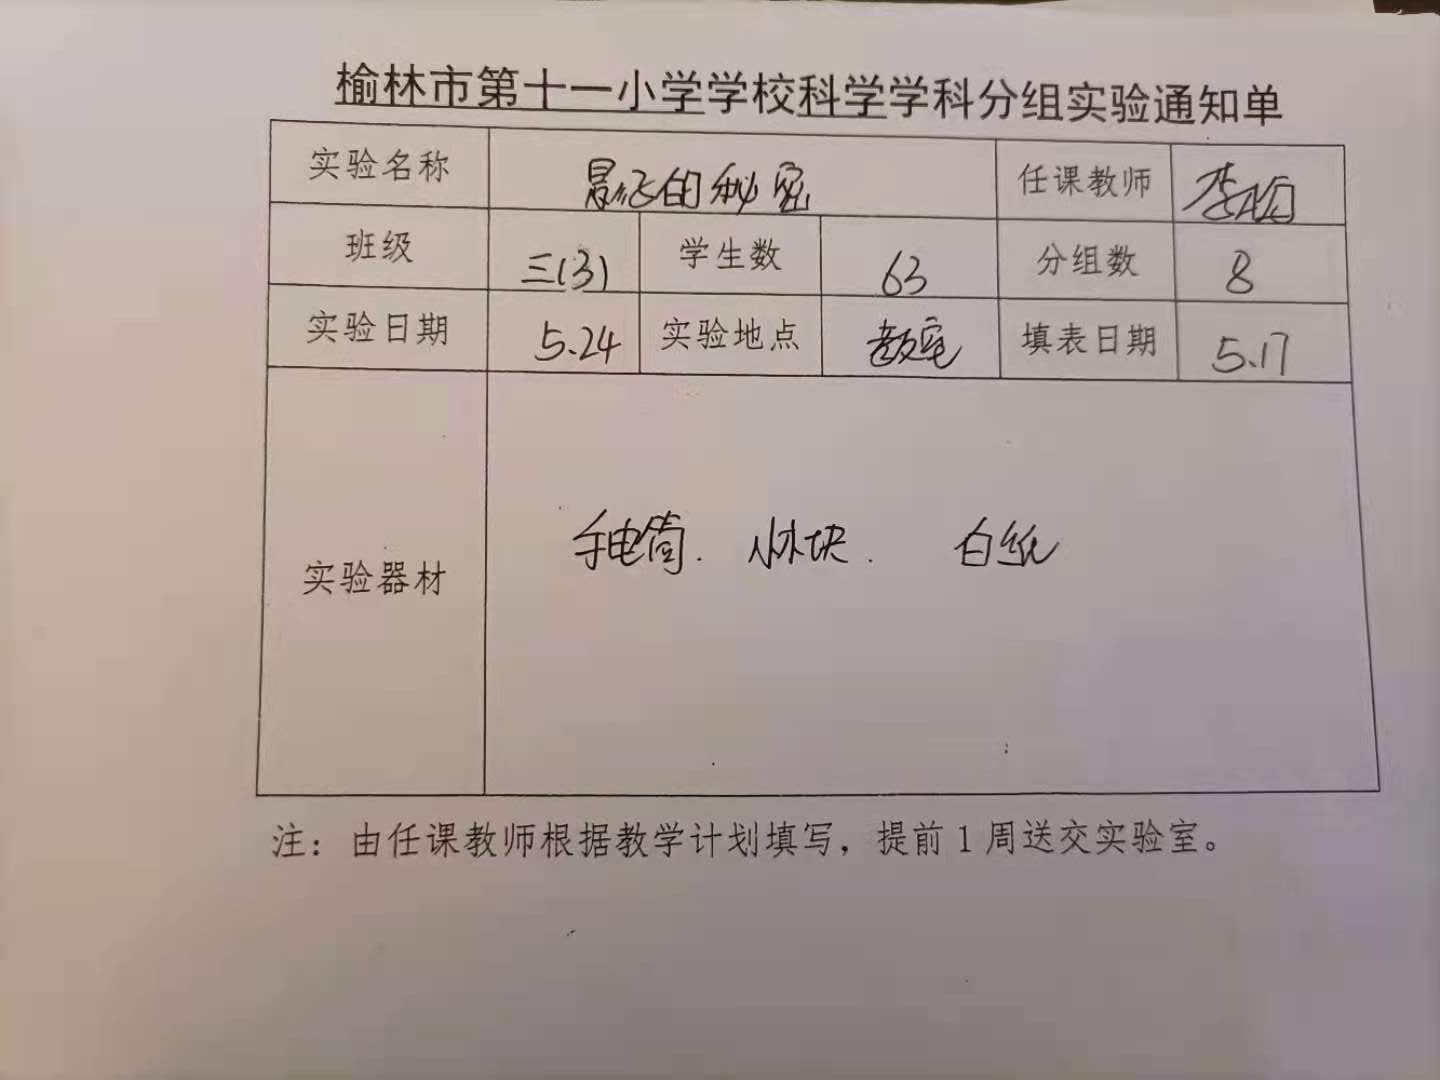 榆林市第十一小学学校科学学科分组实验通知单
实验名称 影子的秘密 任课教师 李
班级 三(3) 学生数 63 分组数 8
实验日期 5.24 实验地点 教室 填表日期 5.17
实验器材 手电筒. 小木块. 白纸
注：由任课教师根据教学计划填写，提前1周送交实验室。